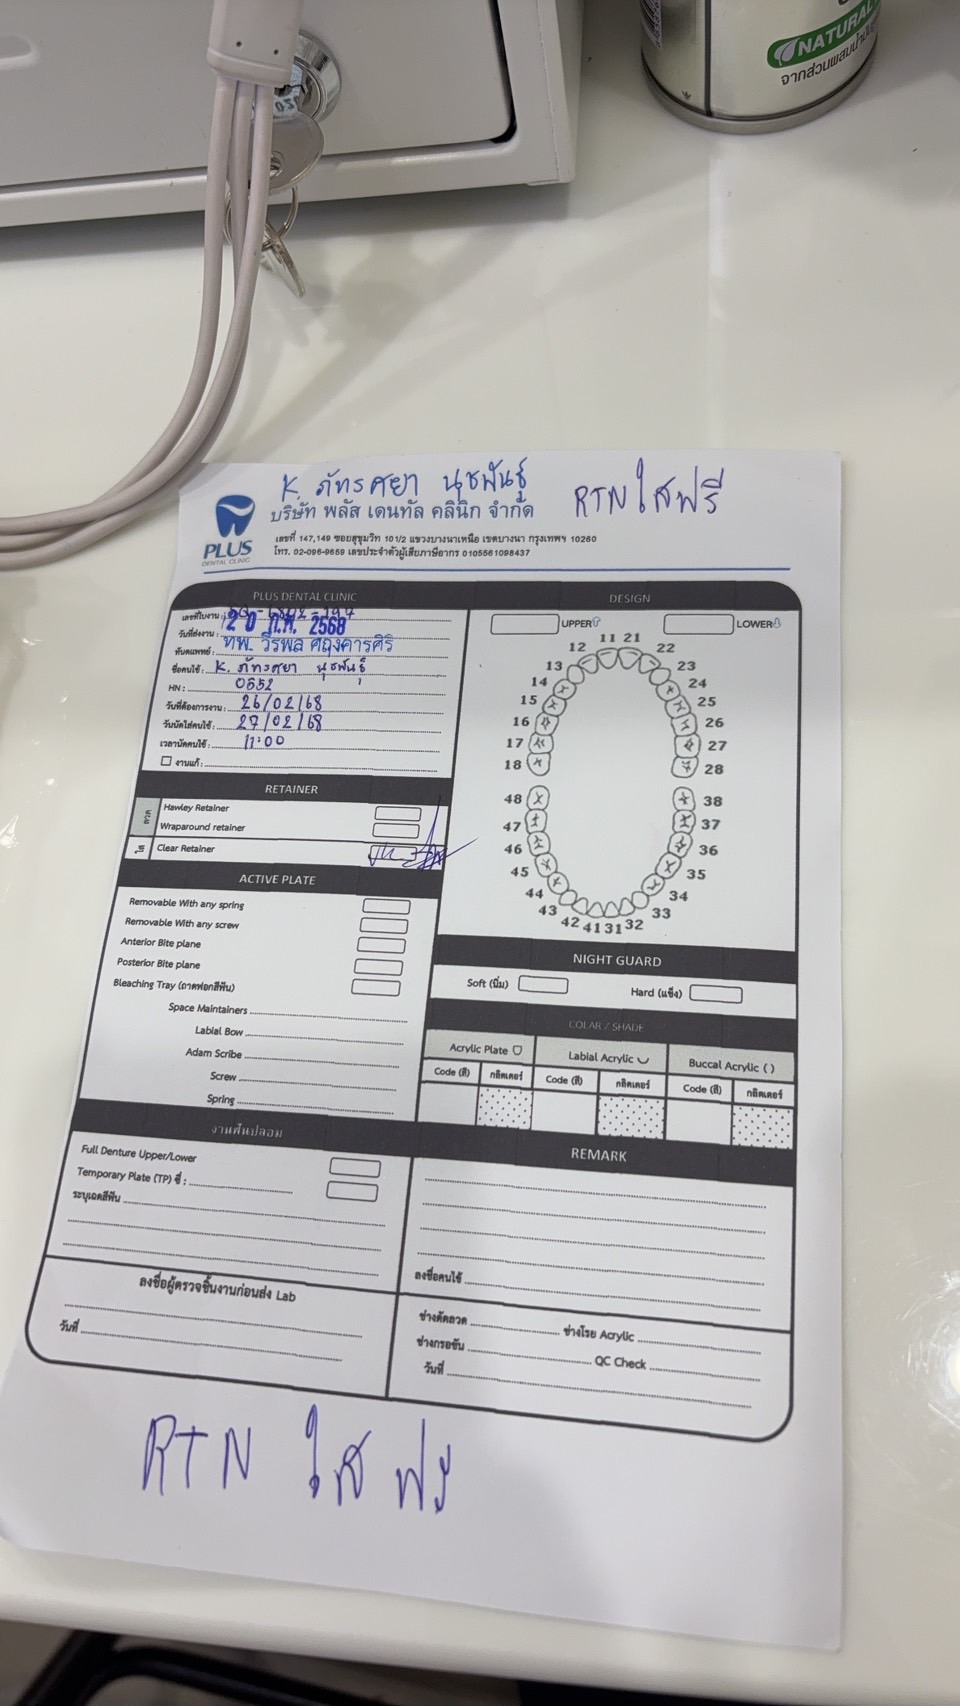 NATURAL
จากส่วนผสมน้ำมัน
K. ภัทรศยา นุชพันธุ์
RTN ใสฟรี
PLUS
DENTAL CLINIC
บริษัท พลัส เดนทัล คลินิก จำกัด
เลขที่ 147,149 ซอยสุขุมวิท 101/2 แขวงบางนาเหนือ เขตบางนา กรุงเทพฯ 10260
โทร. 02-096-9659 เลขประจำตัวผู้เสียภาษีอากร 0105561098437
PLUS DENTAL CLINIC
เลขที่ใบงาน :
วันที่ส่งงาน : 20 ก.พ. 2568
ทันตแพทย์ : ทพ. วีรพล ศฤงคารศิริ
ชื่อคนไข้ : K. ภัทรศยา นุชพันธุ์
HN : 0552
วันที่ต้องการงาน : 26/02/68
วันนัดใส่คนไข้ : 27/02/68
เวลานัดคนไข้ : 11:00
งานแก้ :
RETAINER
ลวด
Hawley Retainer
Wraparound retainer
ใส
Clear Retainer
ACTIVE PLATE
Removable With any spring
Removable With any screw
Anterior Bite plane
Posterior Bite plane
Bleaching Tray (ถาดฟอกสีฟัน)
Space Maintainers
Labial Bow
Adam Scribe
Screw
Spring
งานฟันปลอม
Full Denture Upper/Lower
Temporary Plate (TP) ซี่ :
ระบุเฉดสีฟัน
ลงชื่อผู้ตรวจชิ้นงานก่อนส่ง Lab
วันที่
DESIGN
UPPER
LOWER
11 21
12 22
13 23
14 24
15 25
16 26
17 27
18 28
48 38
47 37
46 36
45 35
44 34
43 33
42 41 31 32
NIGHT GUARD
Soft (นิ่ม)
Hard (แข็ง)
COLAR / SHADE
Acrylic Plate
Labial Acrylic
Buccal Acrylic ( )
Code (สี) กลิตเตอร์ Code (สี) กลิตเตอร์ Code (สี) กลิตเตอร์
REMARK
ลงชื่อคนไข้
ช่างดัดลวด ช่างโรย Acrylic
ช่างกรอขัน QC Check
วันที่
RTN ใส ฟรี